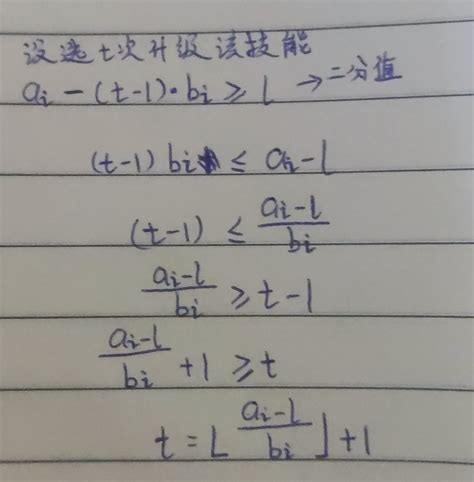 设选t次升级该技能
aᵢ - (t-1)·bᵢ ≥ l → 二分值
(t-1) bᵢ ≤ aᵢ - l
(t-1) ≤ (aᵢ-l)/bᵢ
(aᵢ-l)/bᵢ ≥ t-1
(aᵢ-l)/bᵢ + 1 ≥ t
t = ⌊ (aᵢ-l)/bᵢ ⌋ + 1